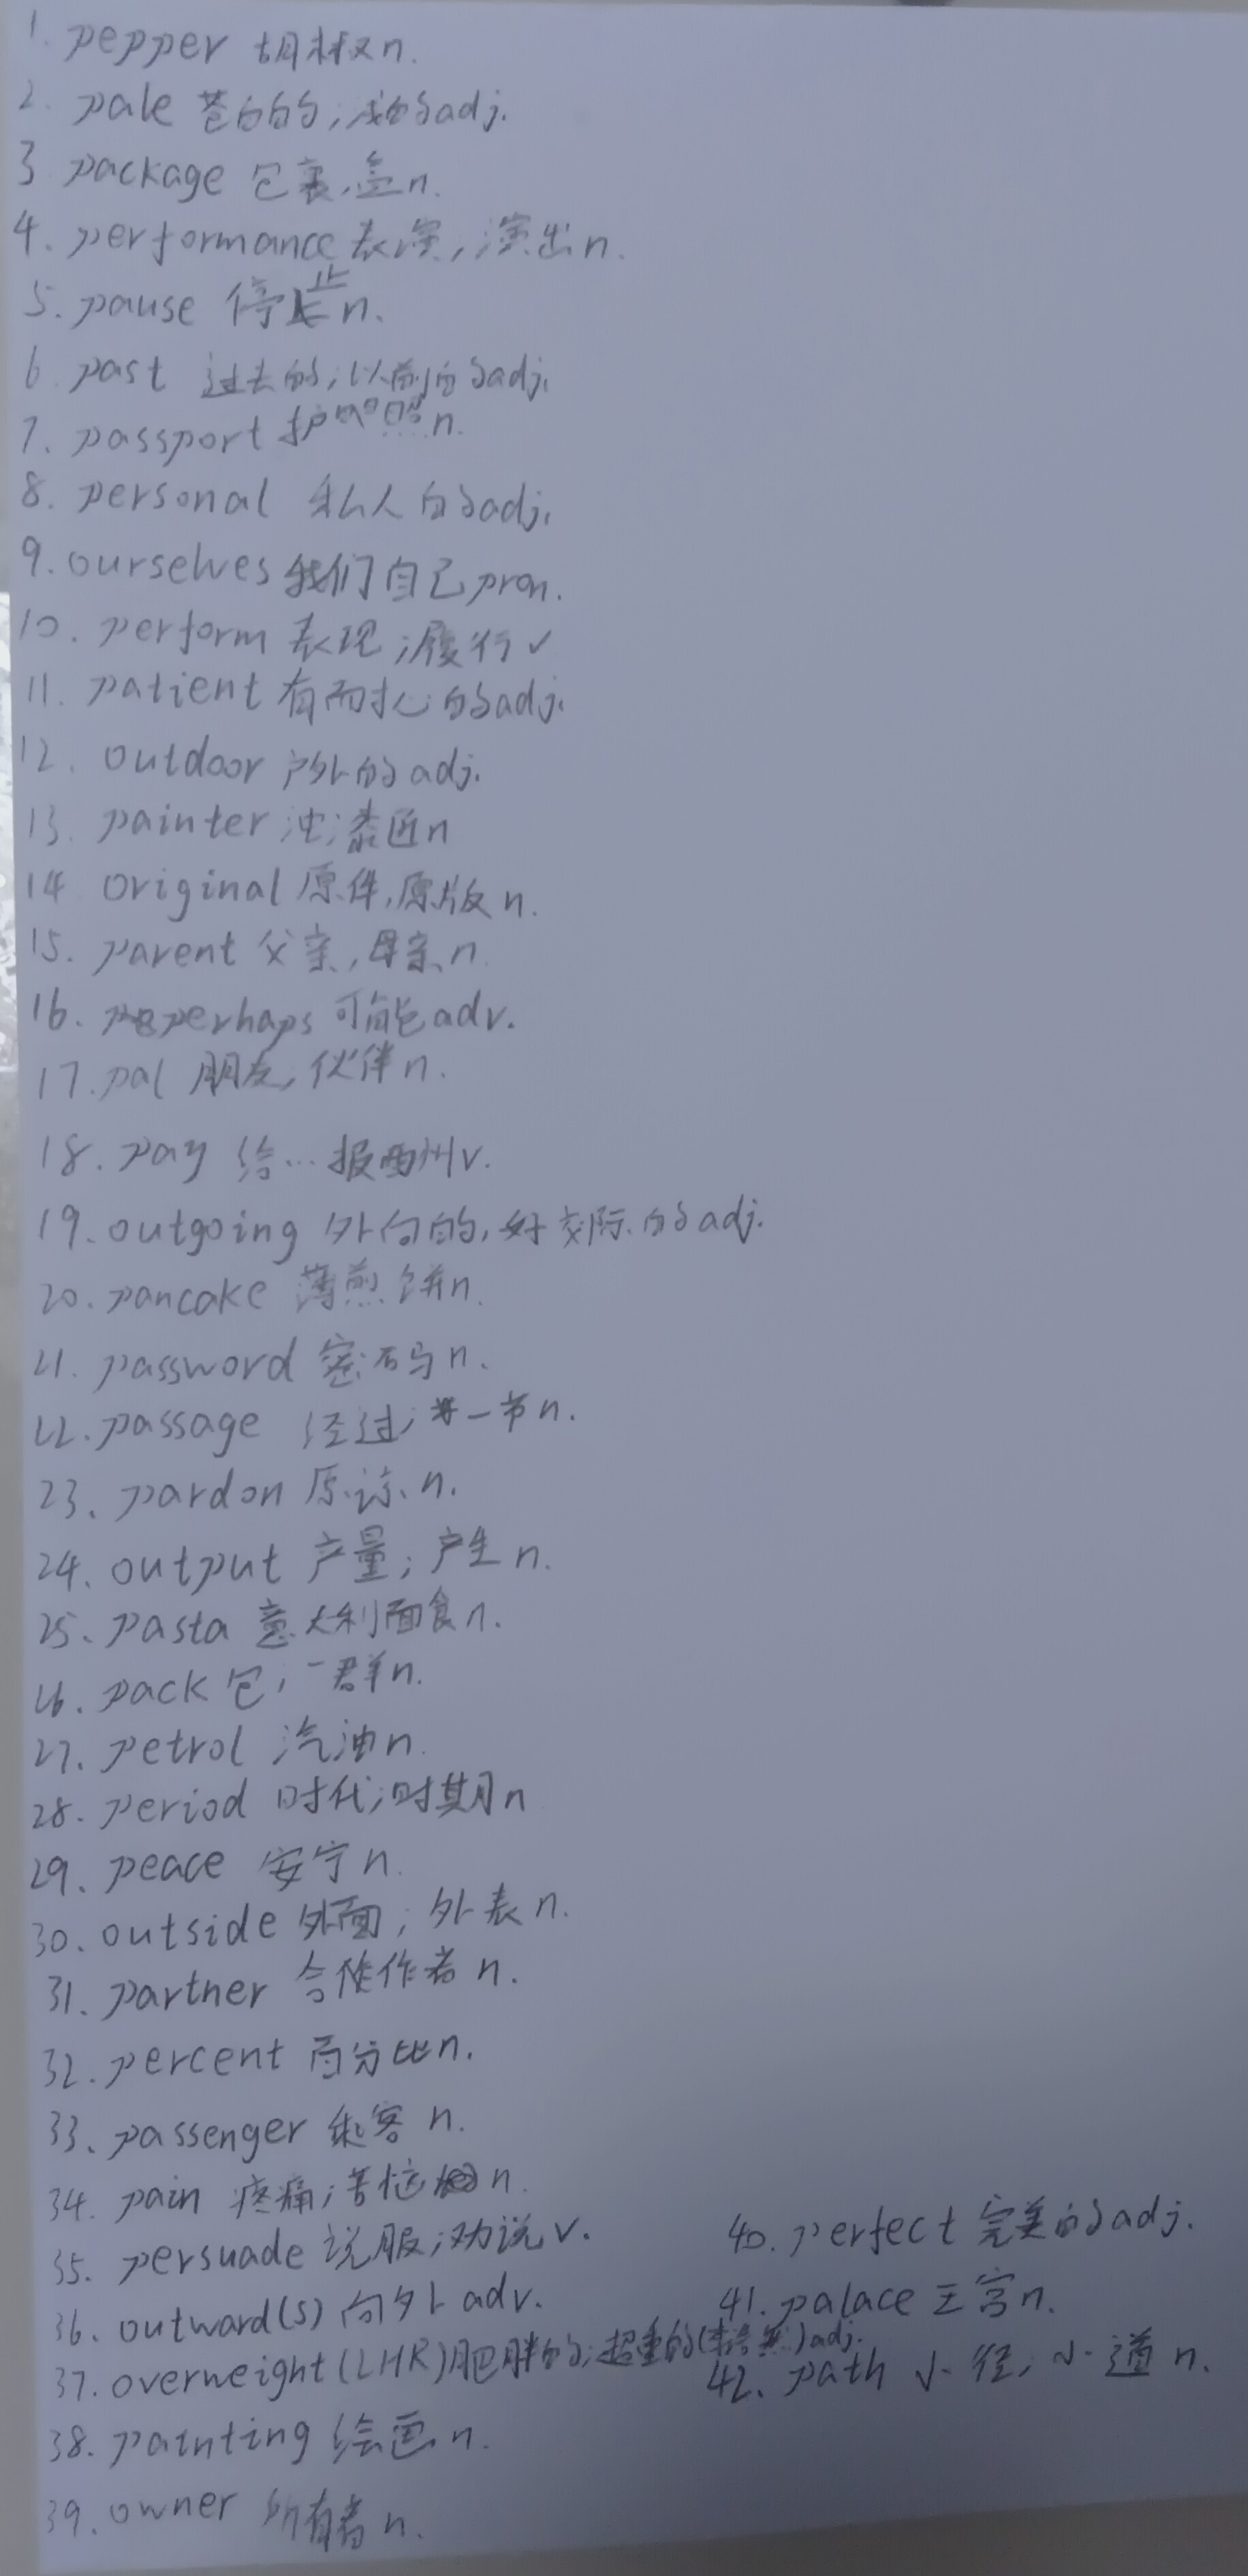 1. pepper 胡椒n.
2. pale 苍白的;浅的adj.
3 package 包裹,盒n.
4. performance 表演;演出n.
5. pause 停止n.
6 past 过去的;以前的adj.
7. passport 护照n.
8. personal 私人的adj.
9. ourselves 我们自己pron.
10. perform 表现;履行v
11. patient 有耐心的adj.
12. outdoor 户外的adj.
13. painter 油漆匠n
14 original 原件,原版n.
15. parent 父亲,母亲n.
16. perhaps 可能adv.
17. pal 朋友,伙伴n.
18. pay 给…报酬v.
19. outgoing 外向的,好交际的adj.
20. pancake 薄煎饼n.
21. password 密码n.
22. passage 经过;一节n.
23. pardon 原谅n.
24. output 产量;产生n.
25. pasta 意大利面食n.
26. pack 包;一群n.
27. petrol 汽油n.
28. period 时代;时期n
29. peace 安宁n.
30. outside 外面;外表n.
31. partner 合作者n.
32. percent 百分比n.
33. passenger 乘客n.
34. pain 疼痛;苦恼n.
35. persuade 说服;劝说v.
36. outward(s) 向外adv.
37. overweight(LHR)肥胖的;超重的adj.
38. painting 绘画n.
39. owner 所有者n.
40. perfect 完美的adj.
41. palace 王宫n.
42. path 小径;小道n.